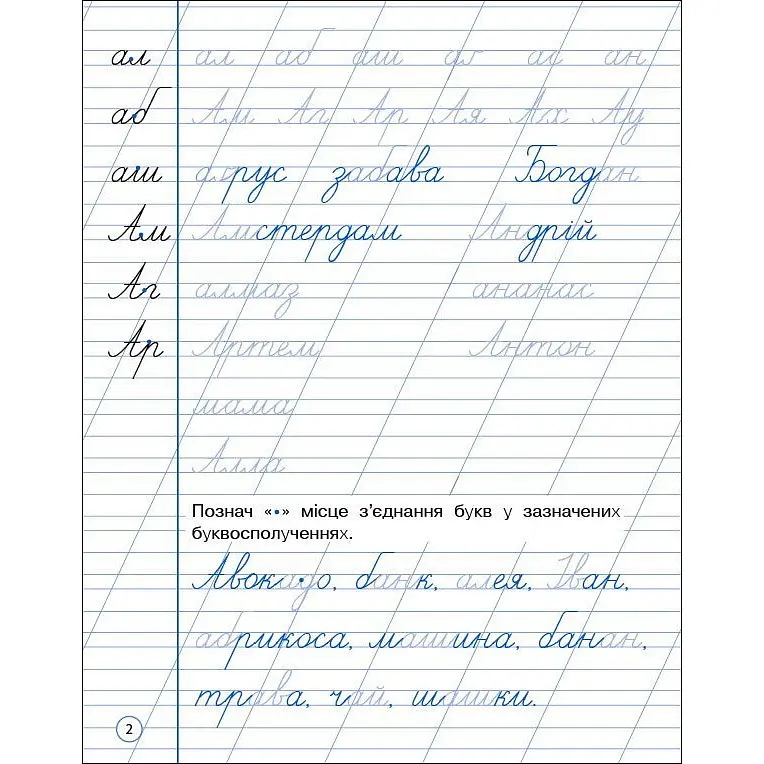 ал ал аб аш аг ас ан
аб Ам Аг Ар Ая Ах Ау
аш абрус забава Богдан
Ам Амстердам Андрій
Аг алмаз ананас
Ар Артем Антон
мама
Алла
Познач «•» місце з'єднання букв у зазначених
буквосполученнях.
Авокадо, банк, алея, Іван,
абрикоса, машина, банан,
трава, чай, шашки.
2